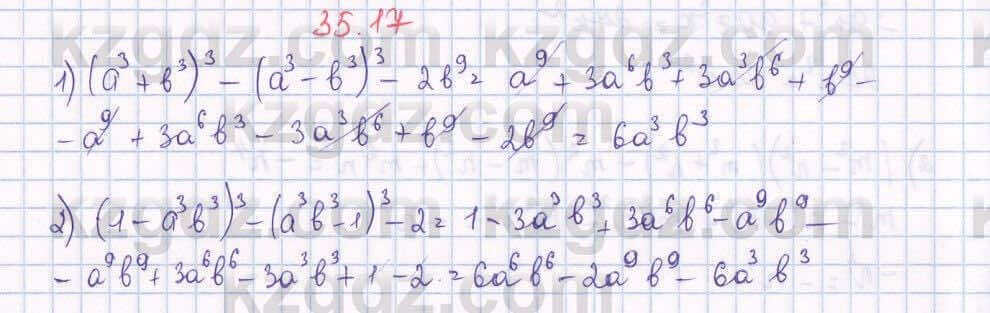 35.17
1) (a³ + b³)³ - (a³ - b³)³ - 2b⁹ = a⁹ + 3a⁶b³ + 3a³b⁶ + b⁹ -
- a⁹ + 3a⁶b³ - 3a³b⁶ + b⁹ - 2b⁹ = 6a³b³
2) (1 - a³b³)³ - (a³b³ - 1)³ - 2 = 1 - 3a³b³ + 3a⁶b⁶ - a⁹b⁹ -
- a⁹b⁹ + 3a⁶b⁶ - 3a³b³ + 1 - 2 = 6a⁶b⁶ - 2a⁹b⁹ - 6a³b³
kzgdz.com